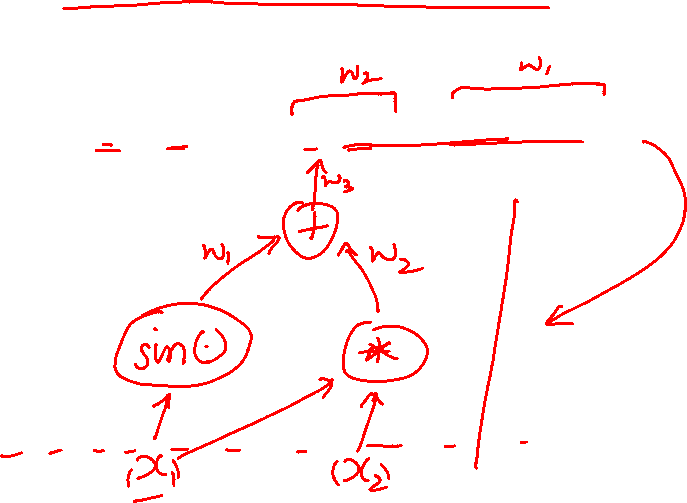 w₂ w₁
w₃
+
w₁ w₂
sin(·) *
x₁ x₂